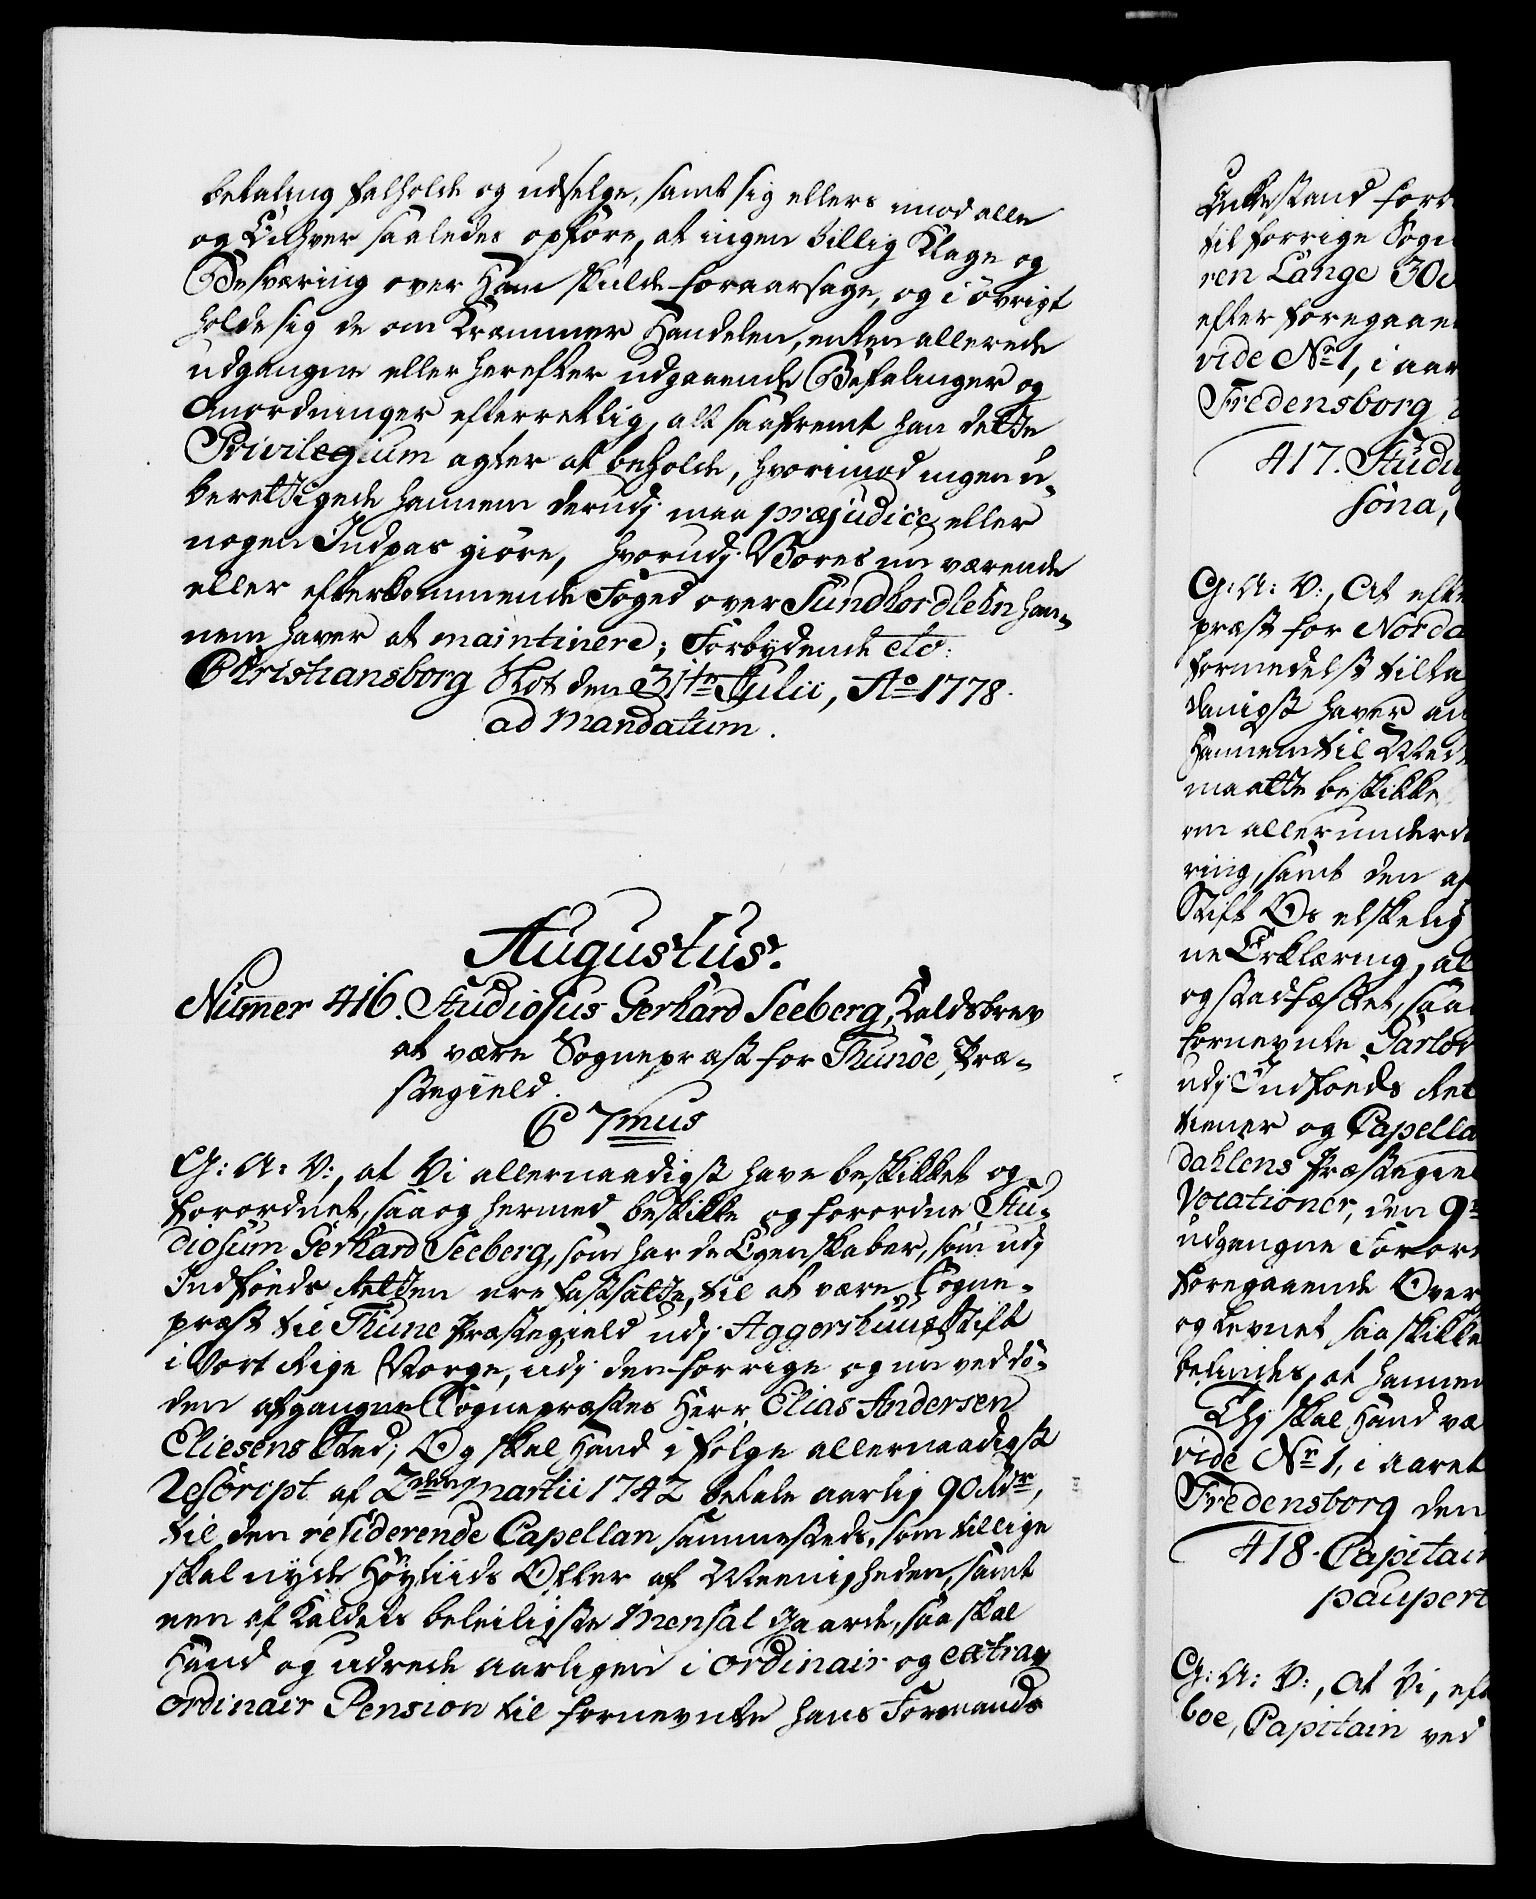 betaling falholde og udselge, samt sig ellers imod alle
og Enhver saaledes opföre, at ingen billig Klage og
Besværing over Ham skulde foraarsage, og i övrigt
holde sig de om Kræmmer Handelen, enten allerede
udgangne eller herefter udgaaende Befalinger og
Anordninger efterrettlig, alt saafremt han dette
Privilegium agter at beholde, hvorimod ingen u-
berettigede hannem derudj maa præjudice eller
nogen Indpas giöre, hvorudj Vores nu værende
eller efterkommende Foged over Sundhordlehn han-
nem haver at maintinere; Forbydende etc:
Christiansborg Slot den 31te Julii, Ao 1778.
ad Mandatum.
Augustus.
Numer 416. Studiosus Gerhard Seeberg, Kaldsbrev
at være Sognepræst for Thunöe, Præ-
stegield.
C 7mus
G: A: V:, at Vi allernaadigst have beskikket og
forordnet, saa og hermed beskikke og forordne Stu-
diosum Gerhard Seeberg, som har de Egenskaber, som udj
Indföeds Retten ere fastsatte, til at være Sogne-
præst til Thune Præstegield udj Aggershuus Stift
i Vort Rige Norge, udj den forrige og nu ved dö-
den afgangne Sognepræstes Herr Elias Andersen
Eliesens Sted; Og skal Hand i fölge allernaadigst
Rescript af 2den Martii 1742 betale aarlig 90 Rdr,
til den residerende Capellan sammesteds, som tillige
skal nyde Höytiids Offer af Meenigheden, samt
een af Kaldets beleiligste Mensal Gaarde, saa skal
Hand og udrede aarligen i ordinair og extra
ordinair Pension til fornevnte hans Formands
Enkestand forr
til forrige Sogn
ren Lange 30
efter foregaaen
vide No 1, i aar
Fredensborg
417. Studi
söna,
G: A: V:, At efte
præst for Norda
formedelst tilta
danigst haver an
Hannem til Med
maatte beskikke
om allerunderd
ring, samt den af
Stift Os elskelig
ne Erklæring, al
og stadfæstet, saa
fornevnte
udj Indföeds Ret
tiener og Capella
dahlens Præstegie
Vocationer, den 9
udgangne Foror
foregaaende Over
og levnet saa skikke
befindes, at hannem
Thj skal Hand væ
vide No 1, i aaret
Fredensborg den
418. Capitain
paupert
G: A: V:, At Vi, eft
boe, Capitain ved